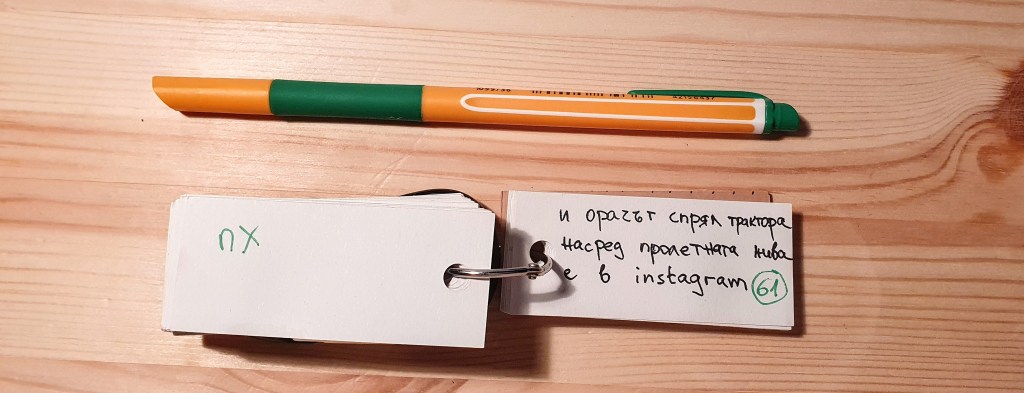 пх
и орачът спрял трактора
насред пролетната нива
е в instagram 61